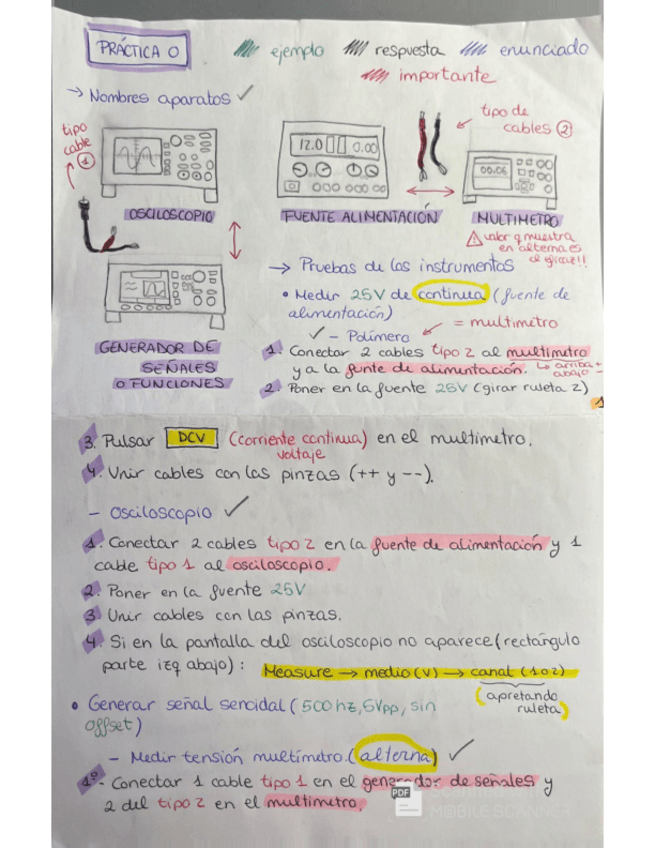 PRÁCTICA 0
ejemplo respuesta enunciado
importante
→ Nombres aparatos ✓
tipo cable 1
tipo de cables 2
12.0 0.00
00.06
OSCILOSCOPIO
FUENTE ALIMENTACIÓN
MULTIMETRO
⚠ valor q muestra
en alterna es
el gicaz!!
GENERADOR DE
SEÑALES
O FUNCIONES
→ Pruebas de los instrumentos
• Medir 25V de continua (fuente de
alimentación)
✓ - Polímero ← = multimetro
1. Conectar 2 cables tipo 2 al multimetro
y a la funte de alimentación. ↳ arriba +
abajo -
2. Poner en la fuente 25V (girar ruleta 2)
1
3. Pulsar DCV (corriente continua) en el multimetro.
voltaje
4. Unir cables con las pinzas (++ y --).
- Osciloscopio ✓
1. Conectar 2 cables tipo 2 en la fuente de alimentación y 1
cable tipo 1 al osciloscopio.
2. Poner en la fuente 25V
3. Unir cables con las pinzas.
4. Si en la pantalla del osciloscopio no aparece (rectángulo
parte izq abajo): Measure → medio (V) → canal (1 o 2)
(apretando
ruleta)
• Generar señal senoidal (500 hz, 5Vpp, sin
offset)
- Medir tensión multímetro. (alterna) ✓
1º- Conectar 1 cable tipo 1 en el generador de señales y
2 del tipo 2 en el multimetro.
PDF
MOBILE SCANNER